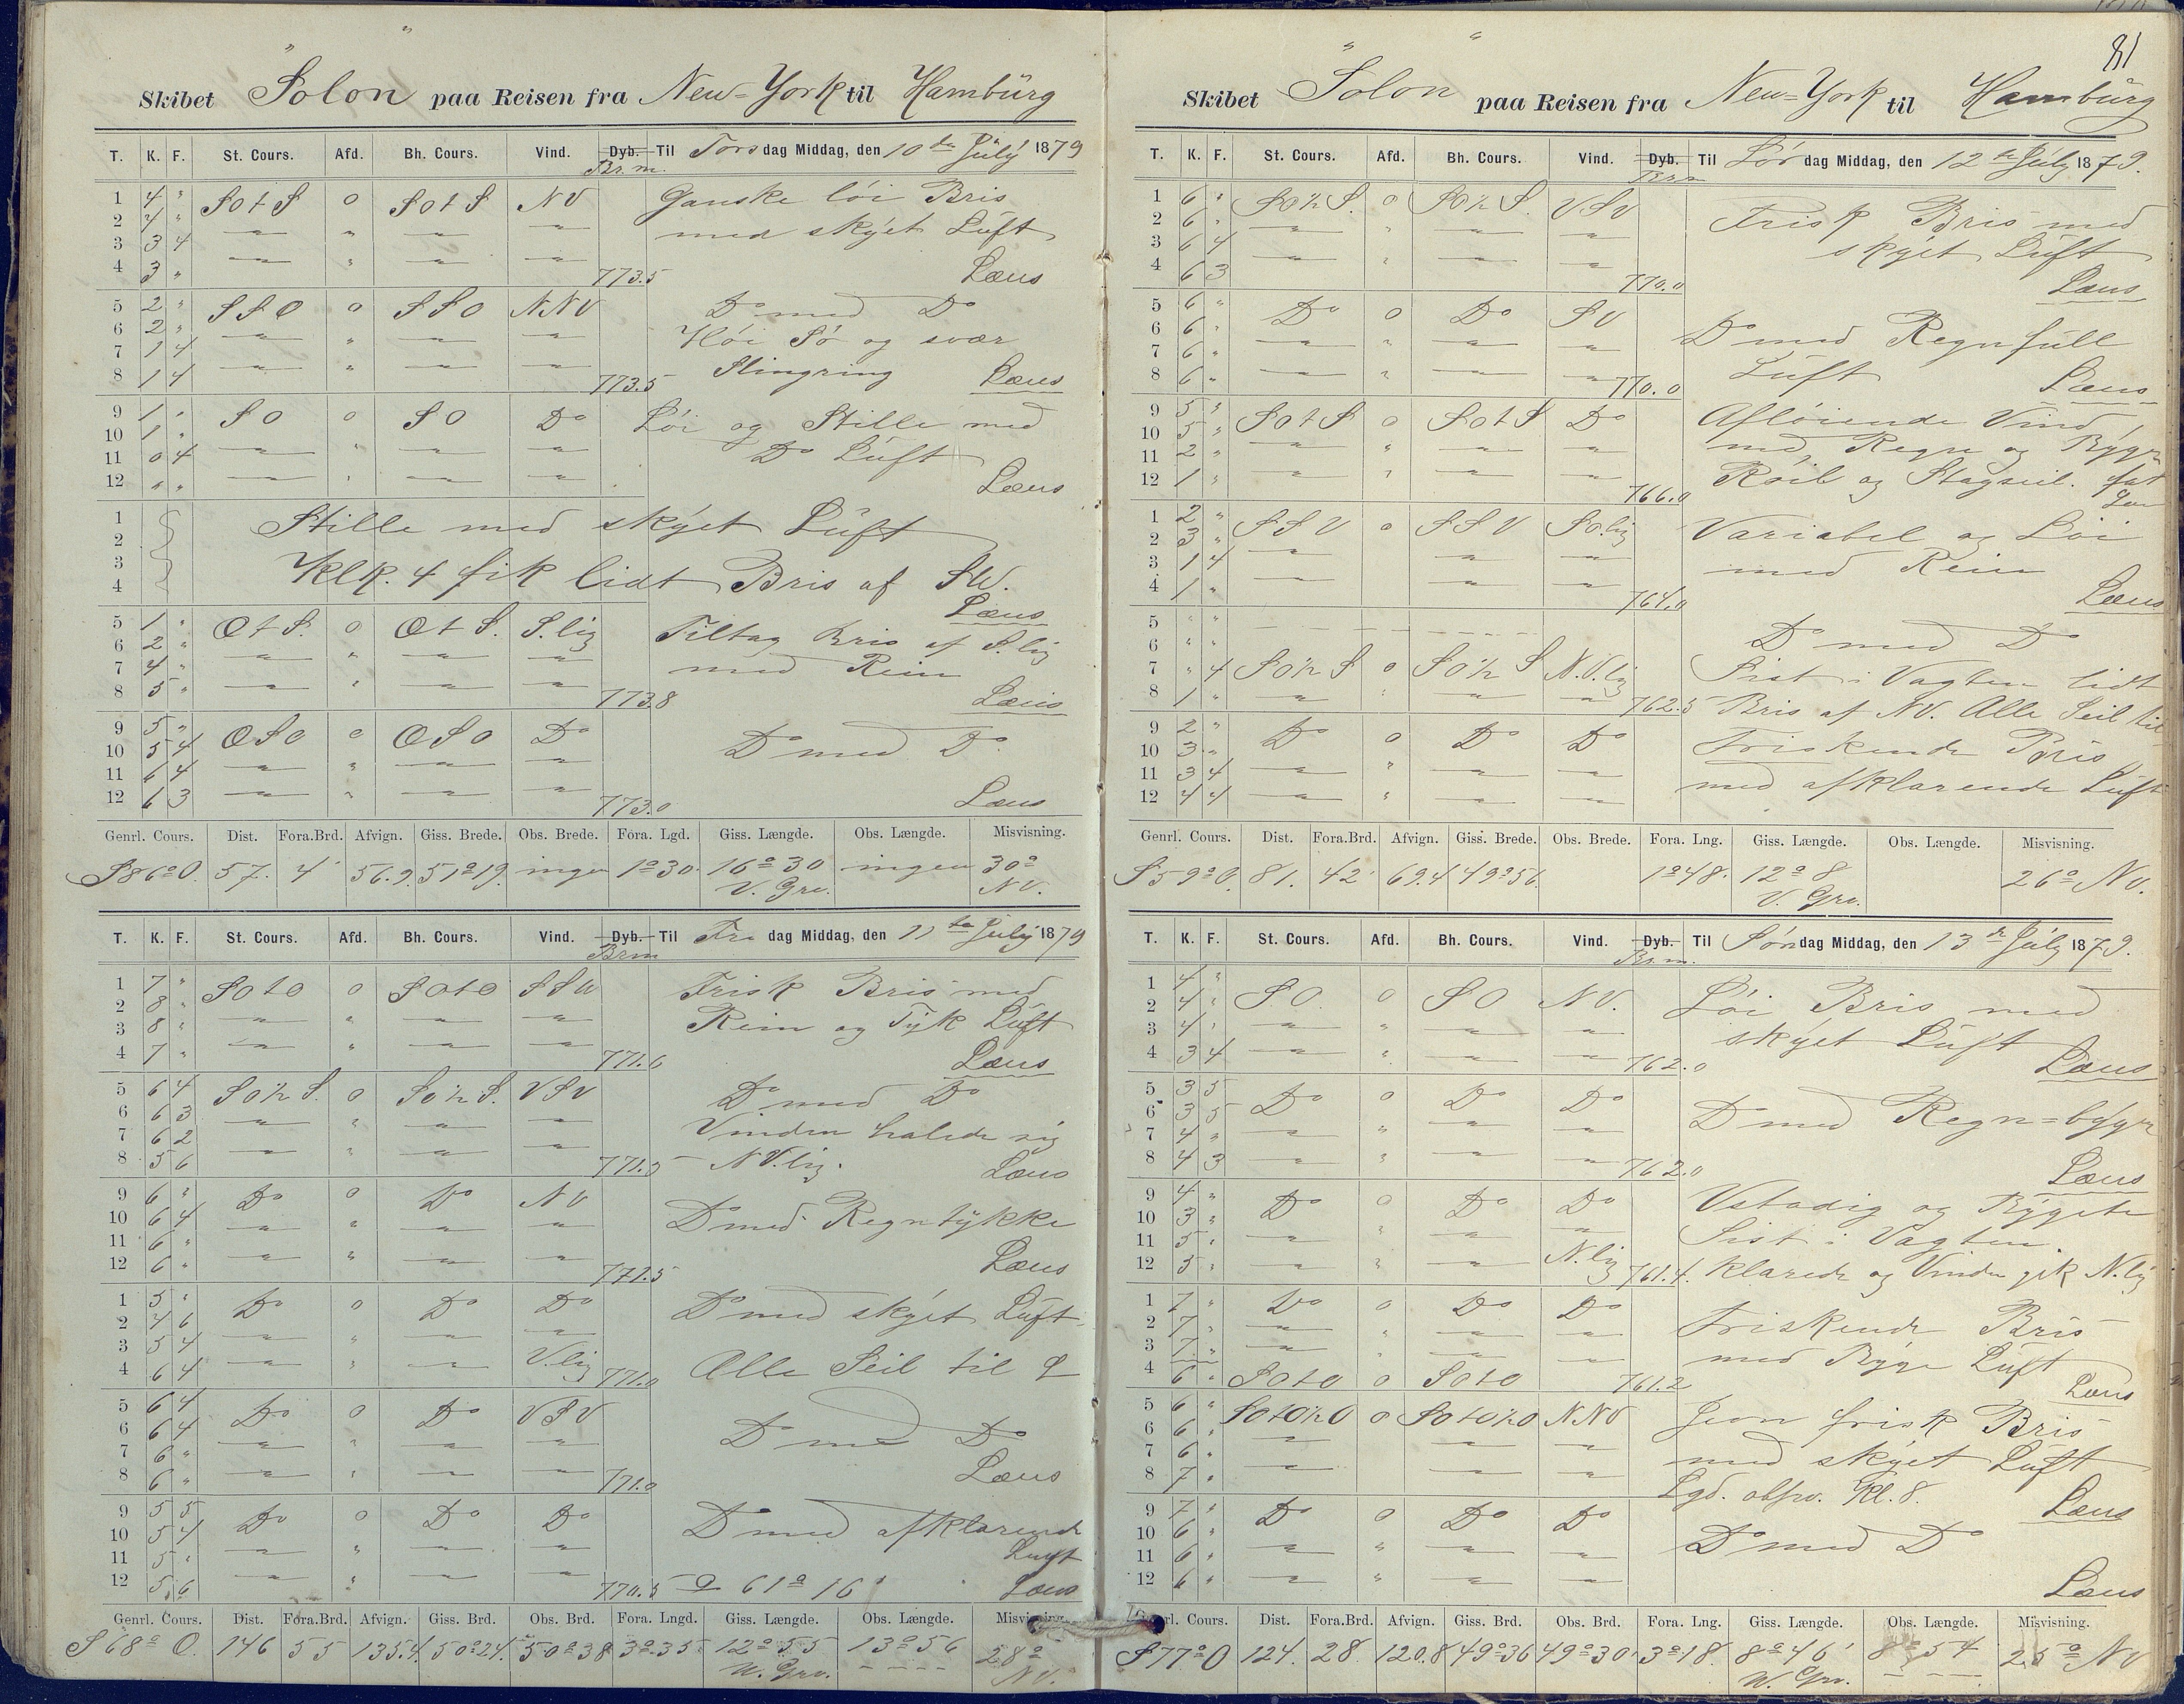 Skibet "Solon" paa Reisen fra New-York til Hamburg
T. K. F. St. Cours. Afd. Bh. Cours. Vind. Dyb. Brm. Til Torsdag Middag, den 10de July 1879
1 4 " SOtS 0 SOtS NV Ganske löi Bris
2 4 " " " " " med skyet Luft
3 3 4 " " " "
4 3 " " " " " 773.5 Læns
5 2 " SSO 0 SSO NNV Do med Do
6 2 " " " " " Höi Sö og svær
7 1 4 " " " " Slingring
8 1 4 " " " " 773.5 Læns
9 1 " SO 0 SO Do Löi og Stille med
10 1 " " " " " Do Luft
11 0 4 " " " "
12 " " " " " " Læns
1
2 Stille med skyet Luft
3
4 Klk. 4 fik lidt Bris af SW.
Læns
5 1 " OtS. 0 OtS. S.lig Tiltag Bris af S.lig
6 2 " " " " " med Rein
7 4 " " " " "
8 5 " " " " " 773.8 Læns
9 5 " OSO 0 OSO Do Do med Do
10 5 4 " " " "
11 6 4 " " " "
12 6 3 " " " " 773.0 Læns
Genrl. Cours. Dist. Fora.Brd. Afvign. Giss. Brede. Obs. Brede. Fora. Lgd. Giss. Længde. Obs. Længde. Misvisning.
S86°O. 57. 4' 56.9 51°19. ingen 1°30 16°30 V. Grv. ingen 30° NV.
T. K. F. St. Cours. Afd. Bh. Cours. Vind. Dyb. Brm Til Fredag Middag, den 11te July 1879
1 7 " SOtO 0 SOtO SSW Frisk Bris med
2 8 " " " " " Rein og Tyk Luft
3 8 " " " " "
4 7 " " " " " 771.6 Læns
5 6 4 SO½S. 0 SO½S. VSV Do med Do
6 6 3 " " " " Vinden halede sig
7 6 2 " " " " NV.lig.
8 5 6 " " " " 771.5 Læns
9 6 " Do 0 Do NV
10 6 4 " " " " Do med Regntykke
11 6 " " " " "
12 6 " " " " " 771.5 Læns
1 5 " Do 0 Do Do Do med skyet Luft
2 4 6 " " " "
3 5 4 " " " "
4 6 4 " " " V.lig 771.0 Alle Seil til
5 6 4 Do 0 Do VSV
6 6 4 " " " " Do med Do
7 6 " " " " "
8 6 " " " " " 771.0 Læns
9 5 5 Do 0 Do Do Do med afklarende
10 5 4 " " " " Luft
11 5 " " " " "
12 5 6 " " " " 770.5 61° 16' Læns
Genrl. Cours. Dist. Fora.Brd. Afvign. Giss. Brd. Obs. Brd. Fora. Lngd. Giss. Længde. Obs. Længde. Misvisning.
S68° O. 146 55 135.4. 50°24. 50°38 3°35 12°55 W. Grv. 13°56 28° NV.
81
Skibet "Solon" paa Reisen fra New-York til Hamburg
T. K. F. St. Cours. Afd. Bh. Cours. Vind. Dyb. Brm Til Lördag Middag, den 12te July 1879.
1 6 " SO½S. 0 SO½S. VSV Frisk Bris med
2 6 " " " " " skyet Luft
3 6 4 " " " "
4 6 3 " " " " 770.0 Læns
5 6 " Do 0 Do SV
6 6 " " " " " Do med Regnfull
7 6 " " " " " Luft
8 6 " " " " " 770.0 Læns
9 5 " SOtS 0 SOtS Do Aflöiende Vind
10 5 " " " " " med Regn og Byger
11 2 " " " " " Röil og Stagseil. fast
12 1 " " " " " 766.0
1 2 " SSV 0 SSV SO.lig Variabel og Löi
2 3 " " " " med Rein
3 1 4 " " "
4 1 " " " " 764.0 Læns
5 " " Do med Do
6 " "
7 " 4 SO½S 0 SO½S N.V.lig Sist i Vagten lidt
8 1 " " " " " 762.5 Bris af NV. Alle Seil til
9 2 " Do 0 Do Do Friskende Bris
10 3 " " " " "
11 3 4 " " " " med afklarende Luft
12 4 4 " " " "
Genrl. Cours. Dist. Fora.Brd. Afvign. Giss. Brede. Obs. Brede. Fora. Lng. Giss. Længde. Obs. Længde. Misvisning.
S59°O. 81. 42' 69.4 49°56. 1°48. 12°8 V. Grv. 26° NV.
T. K. F. St. Cours. Afd. Bh. Cours. Vind. Dyb. Brm. Til Söndag Middag, den 13de July 1879.
1 4 " S.O. 0 SO NV. Löi Bris med
2 4 " " " " " skyet Luft
3 4 " " " " "
4 3 4 " " " " 762.0 Læns
5 3 5 Do 0 Do Do Do med Regn=byger
6 3 5 " " " "
7 4 " " " " "
8 4 3 " " " " 762.0 Læns
9 4 " Do 0 Do Do Ustadig og Bygete
10 3 " " " " " Sist i Vagten
11 5 " " " " N.lig
12 5 " " " " 761.4. klarede og Vinden gik N.lig
1 7 " Do 0 Do Do
2 7 " " " " " Friskende Bris
3 7 " " " " " med Byge Luft
4 6 " SOtO 0 SOtO 761.2 Læns
5 6 " SOtO½O 0 SOtO½O N.NV Jevn frisk Bris
6 6 " " " " med skyet Luft
7 6 " " " "
8 7 " " " " Lgd. obsv. Kl. 8. Læns
9 7 " Do 0 Do Do
10 6 " " " " " Do med Do
11 6 " " " " "
12 6 " " " " " Læns
Genrl. Cours. Dist. Fora.Brd. Afvign. Giss Brd. Obs Brd. Fora. Lng. Giss. Længde. Obs. Længde. Misvisning.
S77°O 124. 28. 120.8 49°36 49°30' 3°18. 8°46' W. Grv. 8°54 25° NV